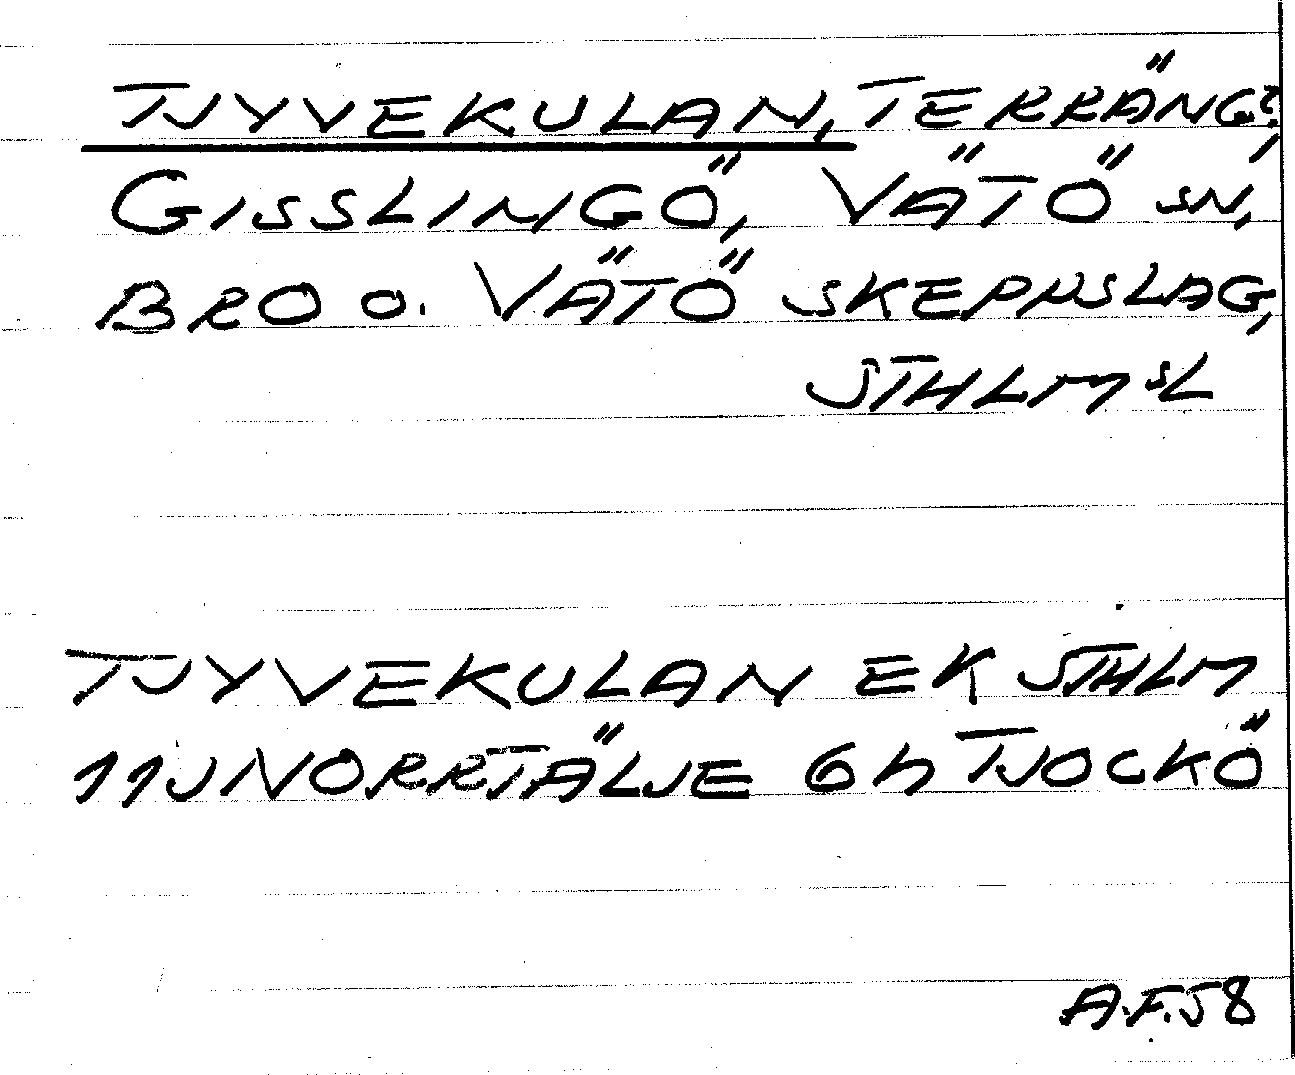 TJYVEKULAN, TERRÄNG?,
GISSLINGÖ, VÄTÖ SN,
BRO O. VÄTÖ SKEPPSLAG,
STHLMSL
TJYVEKULAN EK STHLM
11J NORRTÄLJE 6h TJOCKÖ
A.F.58